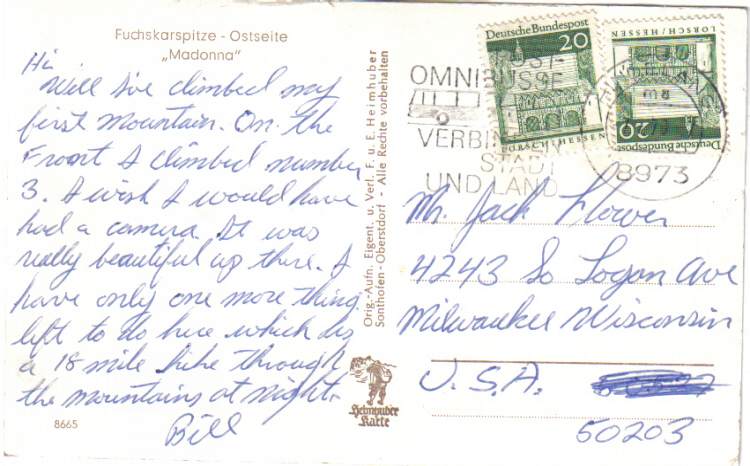 Fuchskarspitze - Ostseite
„Madonna"
Hi
Well I've climbed my
first mountain. On the
Front I climbed number
3. I wish I would have
had a camera. It was
really beautiful up there. I
have only one more thing
left to do here which is
a 18 mile hike through
the mountains at night.
Bill
8665
Orig.-Aufn. Eigent. u. Verl. F. u. E. Heimhuber
Sonthofen-Oberstdorf - Alle Rechte vorbehalten
Heimhuber
Karte
Deutsche Bundespost
20
LORSCH/HESSEN
Deutsche Bundespost
20
LORSCH/HESSEN
POST-
OMNIBUSSE
STADT
UND LAND
8973
Mr. Jack Flower
4243 So Logan Ave
Milwaukee Wisconsin
U.S.A.
50203